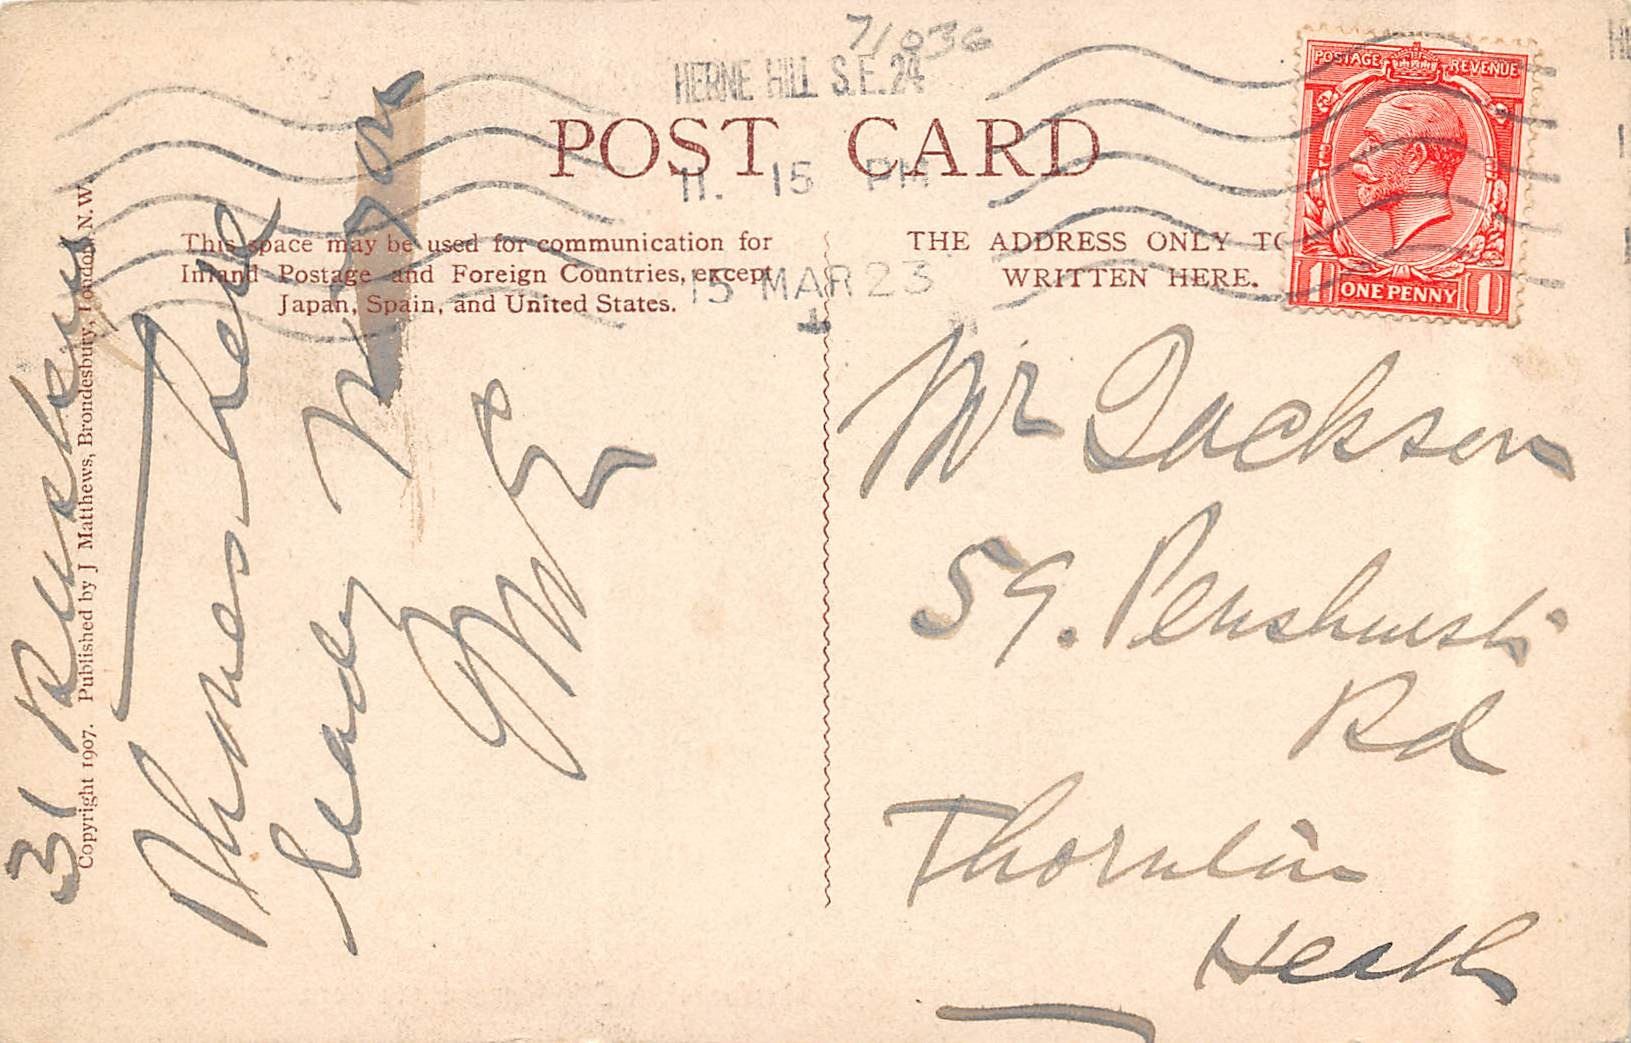 71036
HERNE HILL S.E.24
11. 15 PM
15 MAR 23
POSTAGE REVENUE
1 ONE PENNY 1
POST CARD
This space may be used for communication for
Inland Postage and Foreign Countries, except
Japan, Spain, and United States.
THE ADDRESS ONLY TO
WRITTEN HERE.
Copyright 1907. Published by J Matthews, Brondesbury, London, N.W.
31 Ruskin
Phones Red
ready
Mr Jackson
59. Penshurst
Rd
Thornton
Heath